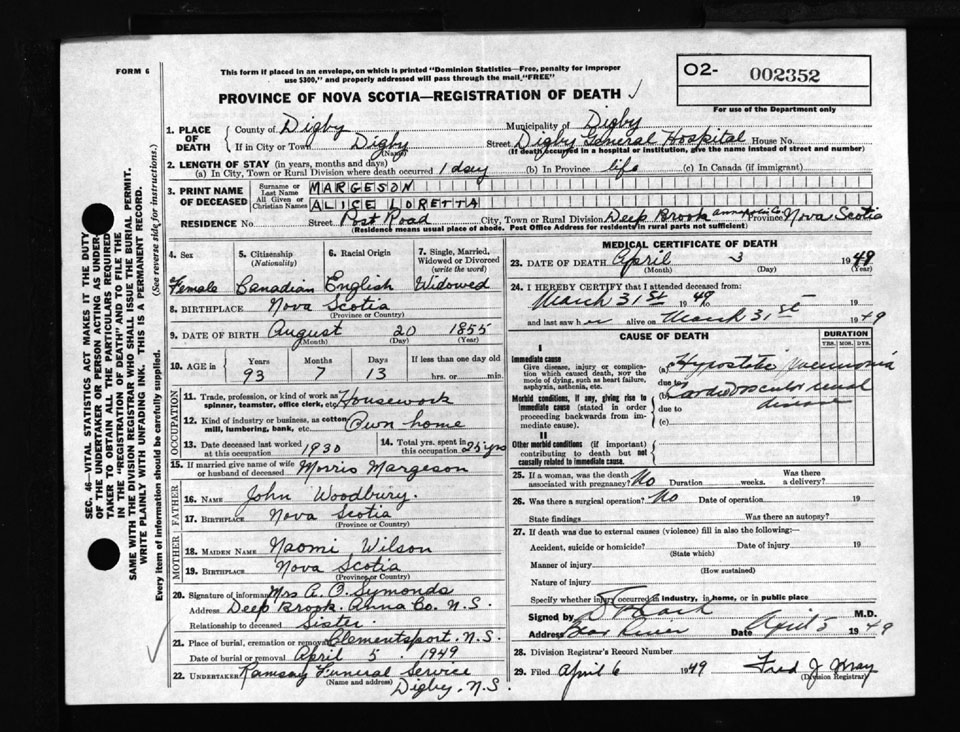 FORM 6
This form if placed in an envelope, on which is printed "Dominion Statistics—Free, penalty for improper
use $300," and properly addressed will pass through the mail "FREE"
PROVINCE OF NOVA SCOTIA—REGISTRATION OF DEATH
O2- 002352
For use of the Department only
1. PLACE OF DEATH
County of Digby Municipality of Digby
If in City or Town Digby (Name) Street Digby General Hospital House No.
(If death occurred in a hospital or institution, give the name instead of street and number)
2. LENGTH OF STAY (in years, months and days)
(a) In City, Town or Rural Division where death occurred 1 day (b) In Province life (c) In Canada (if immigrant)
3. PRINT NAME OF DECEASED
Surname or Last Name MARGESON
All Given or Christian Names ALICE LORETTA
RESIDENCE No. Street Post Road City, Town or Rural Division Deep Brook Annapolis Co. Province Nova Scotia
(Residence means usual place of abode. Post Office Address for residents in rural parts not sufficient)
4. Sex
Female
5. Citizenship (Nationality)
Canadian
6. Racial Origin
English
7. Single, Married, Widowed or Divorced (write the word)
Widowed
8. BIRTHPLACE Nova Scotia
(Province or Country)
9. DATE OF BIRTH August 20 1855
(Month) (Day) (Year)
10. AGE in Years Months Days If less than one day old
93 7 13 hrs. or min.
OCCUPATION
11. Trade, profession, or kind of work as spinner, teamster, office clerk, etc. Housework
12. Kind of industry or business, as cotton mill, lumbering, bank, etc. Own home
13. Date deceased last worked at this occupation 1930
14. Total yrs. spent in this occupation 25 yrs
15. If married give name of wife or husband of deceased Morris Margeson
FATHER
16. NAME John Woodbury.
17. BIRTHPLACE Nova Scotia
(Province or Country)
MOTHER
18. MAIDEN NAME Naomi Wilson
19. BIRTHPLACE Nova Scotia
(Province or Country)
20. Signature of informant Mrs A. O. Symonds
Address Deep Brook. Anna Co. N.S.
Relationship to deceased Sister.
21. Place of burial, cremation or removal Clementsport. N.S.
Date of burial or removal April 5. 1949
22. UNDERTAKER Ramsay Funeral Service
(Name and address) Digby. N.S.
MEDICAL CERTIFICATE OF DEATH
23. DATE OF DEATH April 3 1949
(Month) (Day) (Year)
24. I HEREBY CERTIFY that I attended deceased from:
March 31st 1949 to 19
and last saw her alive on March 31st 1949
CAUSE OF DEATH
DURATION
YRS. MOS. DYS.
I
Immediate cause
Give disease, injury or complication which caused death, NOT the mode of dying, such as heart failure, asphyxia, asthenia, etc.
(a) Hypostatic Pneumonia
due to
Morbid conditions, if any, giving rise to immediate cause (stated in order proceeding backwards from immediate cause).
(b) Cardiovascular renal disease
due to
(c)
II
Other morbid conditions (if important) contributing to death but not causally related to immediate cause.
25. If a woman, was the death associated with pregnancy? No Duration weeks. Was there a delivery?
26. Was there a surgical operation? No Date of operation 19
State findings Was there an autopsy?
27. If death was due to external causes (violence) fill in also the following:—
Accident, suicide or homicide? Date of injury 19
(State which)
Manner of injury
(How sustained)
Nature of injury
Specify whether injury occurred in industry, in home, or in public place
Signed by M.D.
Address Bear River Date April 5 1949
28. Division Registrar's Record Number
29. Filed April 6 1949 Fred J Wray
(Division Registrar)
SEC. 46—VITAL STATISTICS ACT MAKES IT THE DUTY
OF THE UNDERTAKER OR PERSON ACTING AS UNDERTAKER
TO OBTAIN ALL THE PARTICULARS REQUIRED
IN THE "REGISTRATION OF DEATH" AND TO FILE THE
SAME WITH THE DIVISION REGISTRAR WHO SHALL ISSUE THE BURIAL PERMIT.
WRITE PLAINLY WITH UNFADING INK. THIS IS A PERMANENT RECORD.
Every item of information should be carefully supplied. (See reverse side for instructions.)